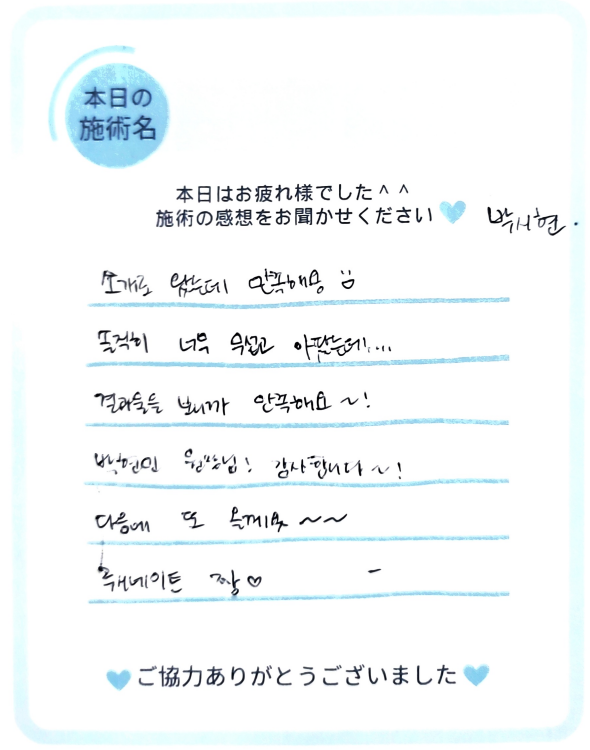 本日の
施術名
本日はお疲れ様でした^ ^
施術の感想をお聞かせください
박서현.
소개로 왔는데 만족해용
솔직히 너무 무섭고 아팠는데!...
결과물을 보니까 만족해요~!
박현민 원장님! 감사합니다~!
다음에 또 올게요 ~~
짱♡
ご協力ありがとうございました